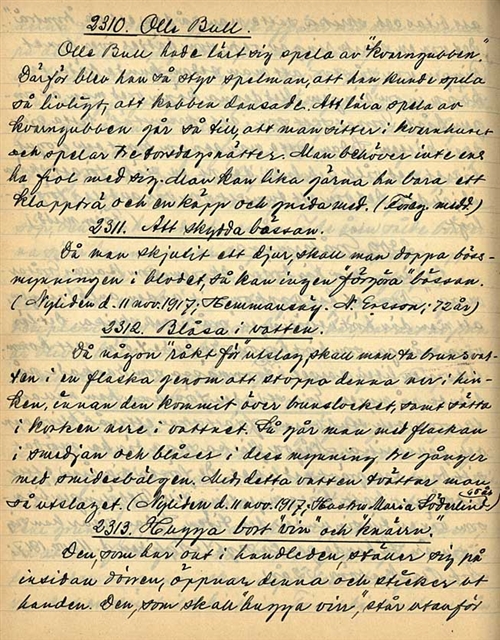 2310. Olle Bull.
Olle Bull hade lärt sig spela av "kvarngubben".
Därför blev han så styv spelman, att han kunde spela
så livligt, att kubben dansade. Att lära spela av
kvarngubben går så till, att man sitter i kvarnhuset
och spelar tre torsdagsnätter. Man behöver inte ens
ha fiol med sig. Man kan lika gärna ha bara ett
klappträ och en käpp och gnida med. (Föreg. medd.)
2311. Att skydda bössan.
Då man skjutit ett djur, skall man doppa böss-
mynningen i blodet, så kan ingen "förgöra" bössan.
(Nyliden d. 11 nov. 1917, Hemmansäg. A. Ersson, 72 år)
2312. Blåsa i vatten.
Då någon "råkt för" utslag, skall man ta brunsvat-
ten i en flaska genom att stoppa denna ner i hin-
ken, innan den kommit över brunslocket, samt sätta
i korken nere i vattnet. Så går man med flaskan
i smedjan och blåser i dess mynning tre gånger
med smidesbälgen. Med detta vatten tvättar man
så utslaget. (Nyliden d. 11 nov. 1917, Maria Söderlind, 65 år)
2313. Hugga bort "vin" och "knärrn."
Den, som har ont i handleden, ställer sig på
insidan dörren, öppnar denna och sticker ut
handen. Den, som skall "hugga vin", står utanför